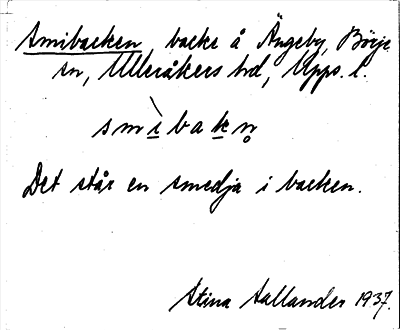 Smibacken, backe å Ängeby, Börje
sn, Ulleråkers hd, Upps. l.
smìbakn̥
Det står en smedja i backen.
Stina Sallander 1937.